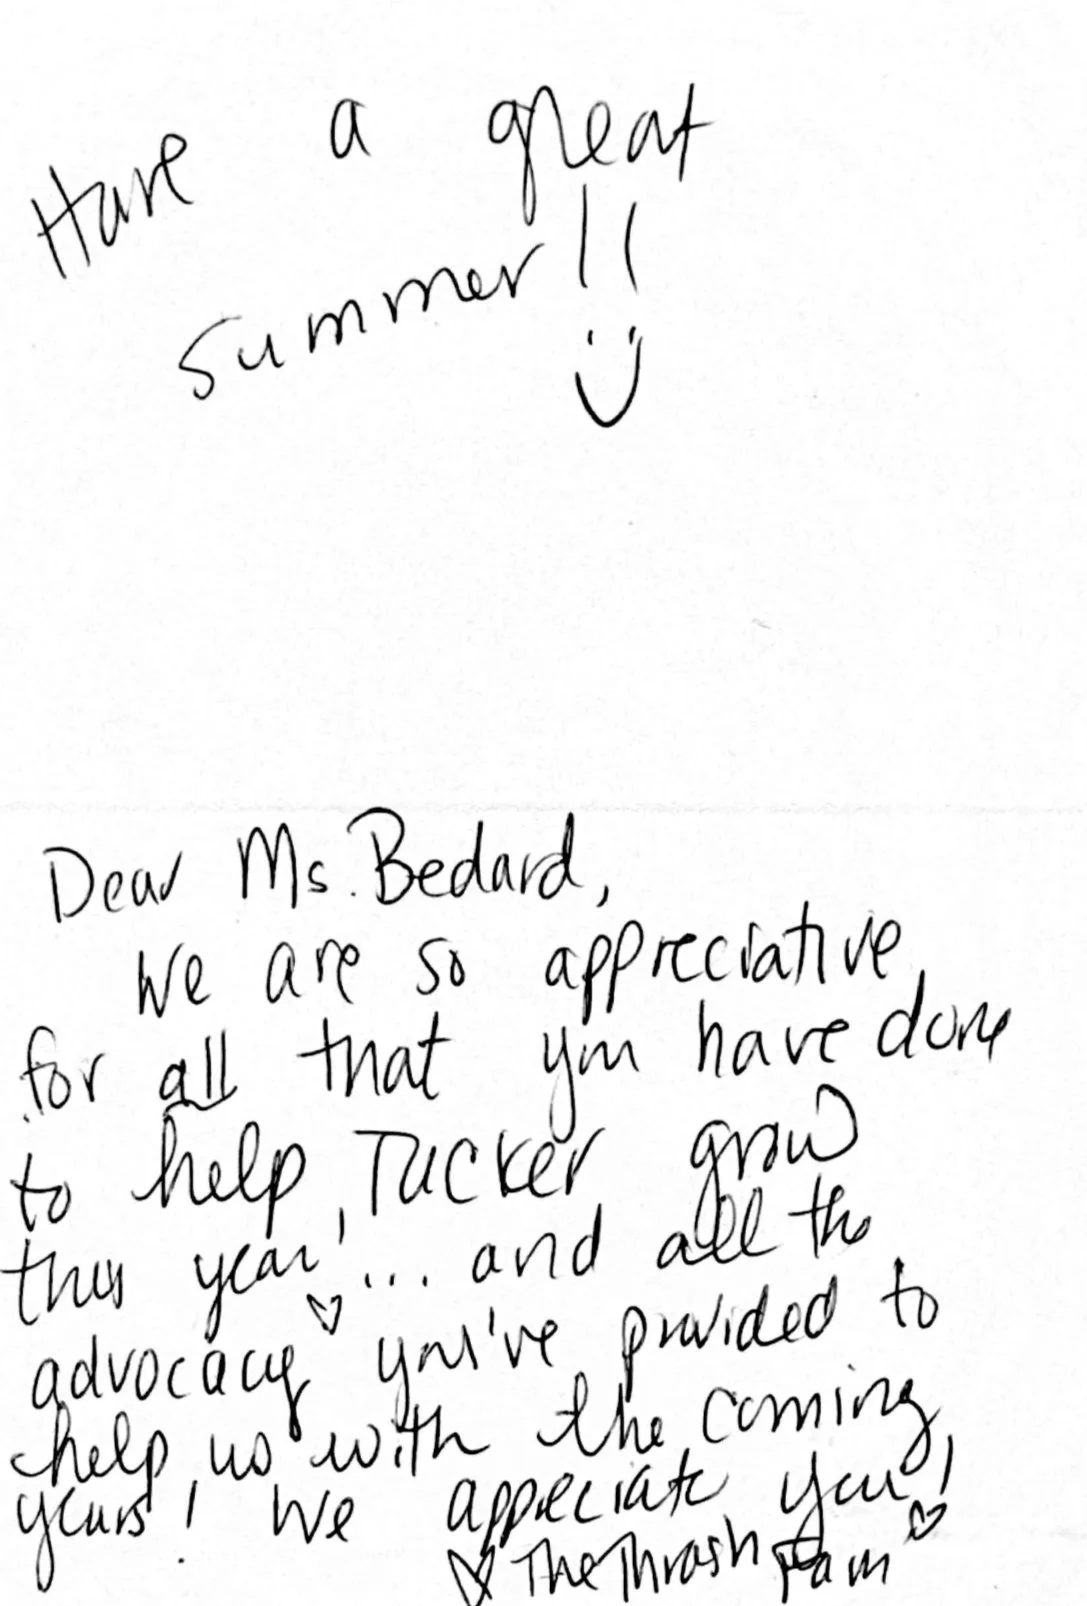 Have a great
summer!!
Dear Ms. Bedard,
We are so appreciative
for all that you have done
to help Tucker grow
this year! ... and all the
advocacy you've provided to
help us with the coming
years! We appreciate you!
♡ The Thrash Fam ♡